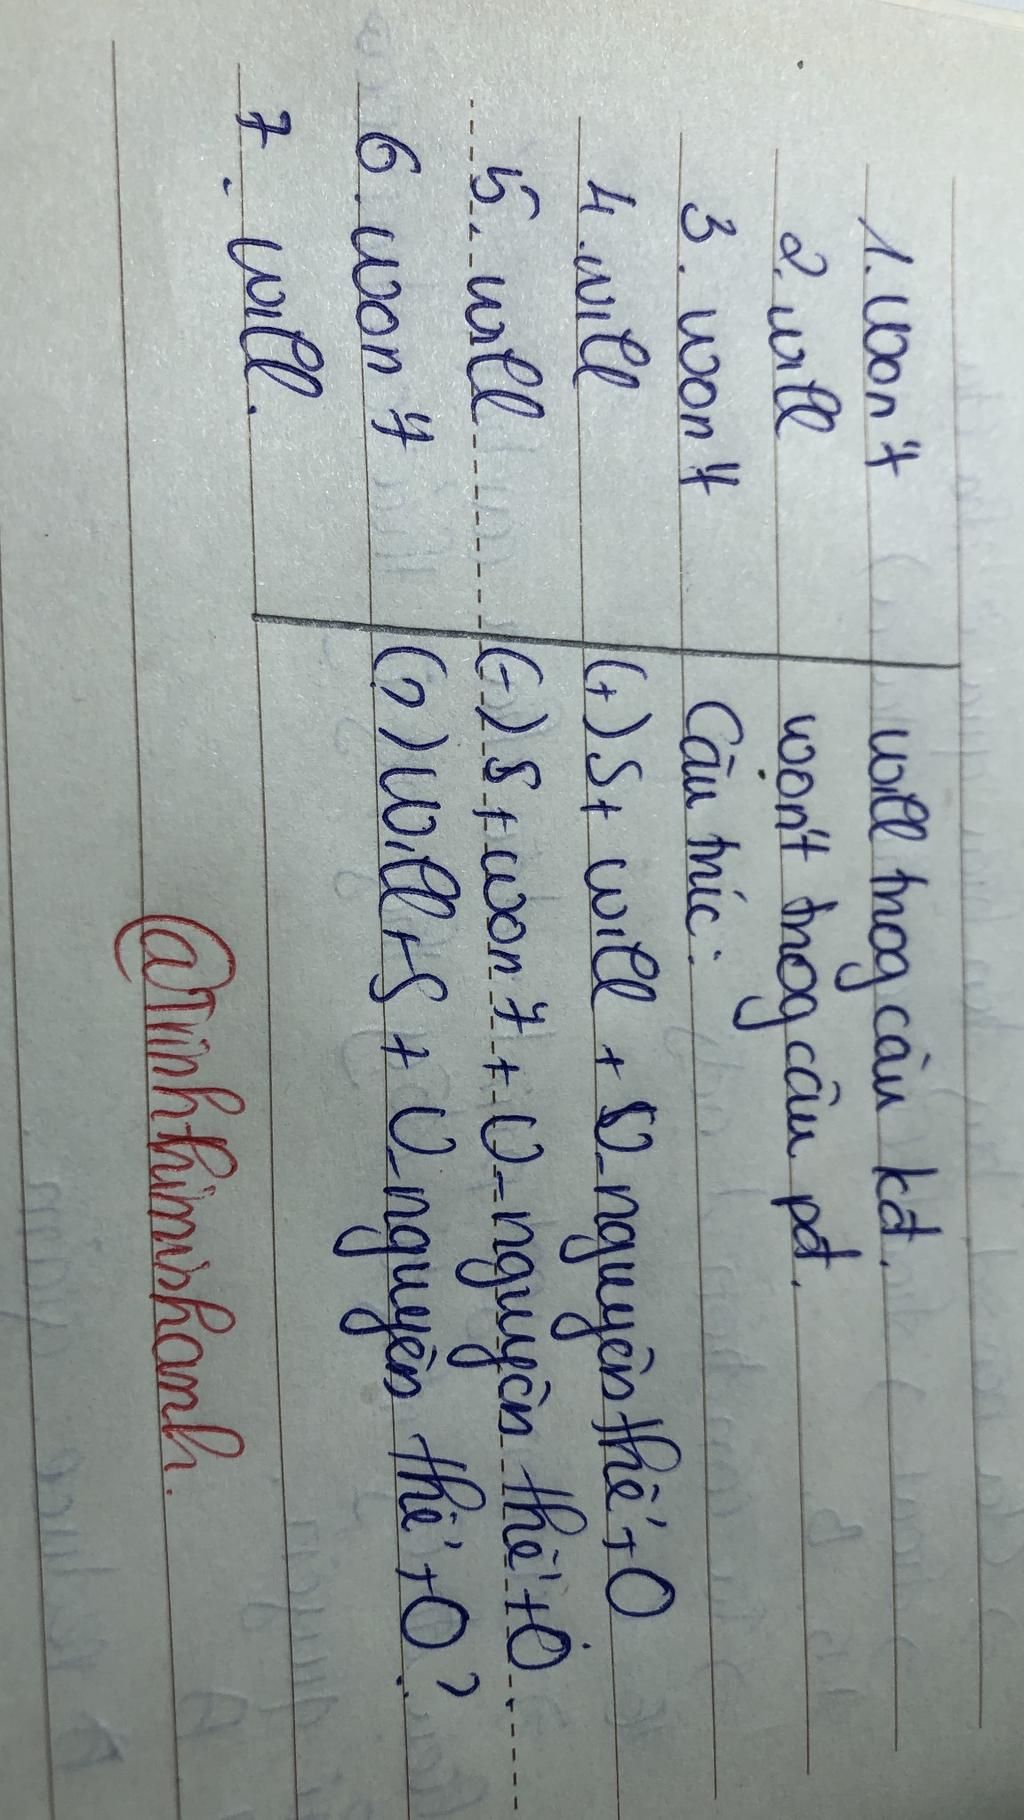 1. won't
2. will
3. won't
4. will
5. will
6. won't
7. will.
will trog câu kđ.
won't trog câu pđ.
Câu trúc:
(+) S + will + V_nguyên thể + O
(-) S + won't + V_nguyên thể + O.
(?) Will + S + V_nguyên thể + O?
@Trinhthiminhanh.